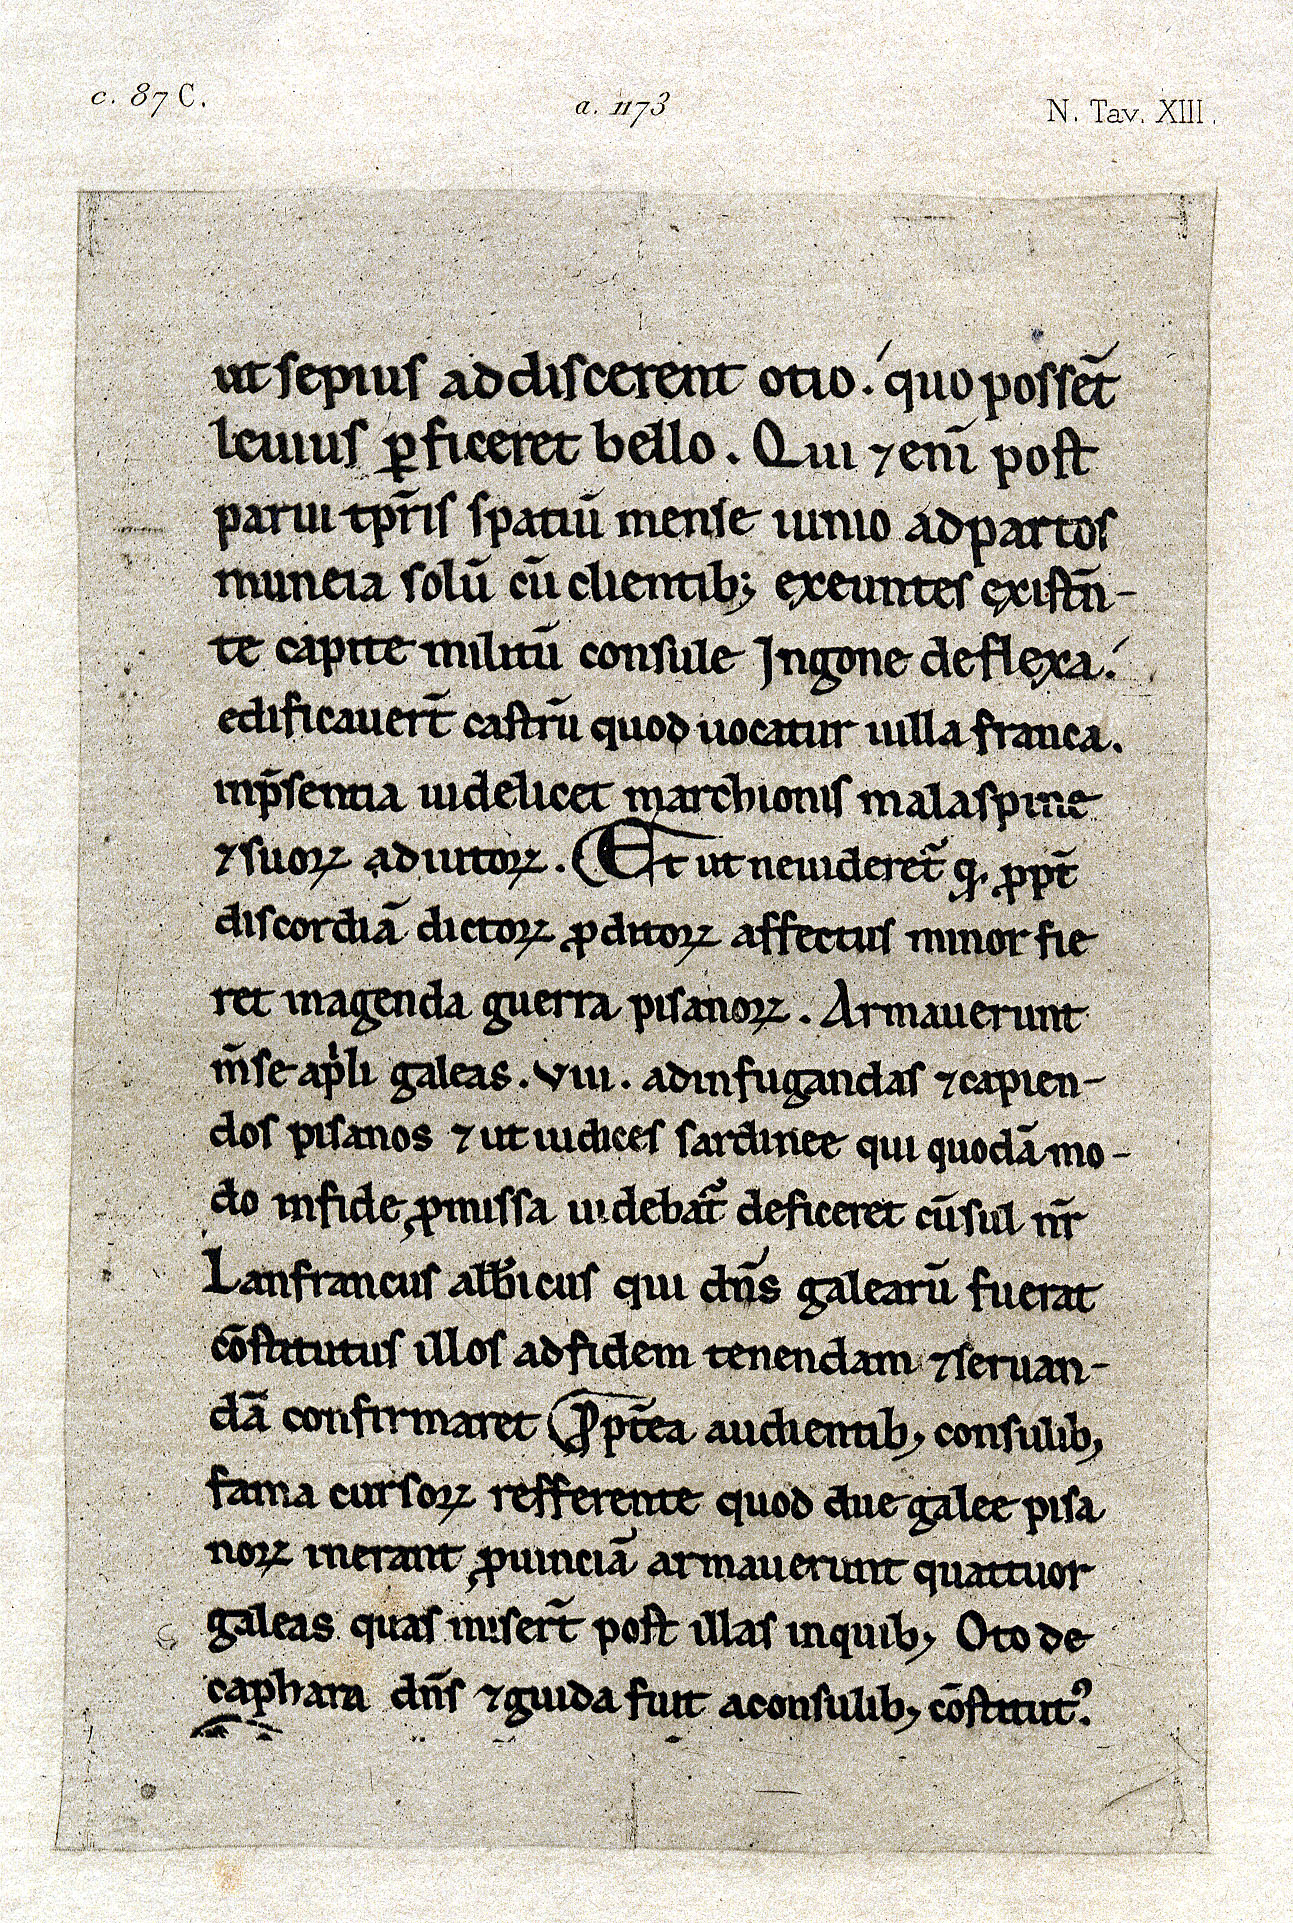 c. 87 C.
a. 1173
N. Tav. XIII.
ut sepius addiscerent otio. quo posset̄
leuius ꝑficeret bello. Qui ⁊enī post
parui tp̄ris spatiū mense iunio adpartos
muneia solū cū clientib; exeuntes existn̄-
te capite militū consule Ingone deflexa.
edificauert̄ castrū quod uocatur uilla franca.
inp̄sentia uidelicet marchionis malaspine
⁊suoꝝ adiutoꝝ. Et ut neuideret̄ ꝙ. ꝓpt̄
discordiā dictoꝝ ꝓditoꝝ affectus minor fie
ret inagenda guerra pisanoꝝ. Armauerunt
m̄se apͥli galeas. VIII. adinfugandas ⁊capien-
dos pisanos ⁊ut iudices sardinee qui quodā mo-
do infide ꝓmissa uidebat᷑ deficeret cūsul nr̄
Lanfrancus alb̄icus qui dn̄s galearū fuerat
cōstitutus illos adfidem tenendam ⁊seruan-
dā confirmaret Ꝓpt̄ea audientib; consulib;
fama cursoꝝ refferente quod due galee pisa
noꝝ inerant ꝓuinciā armauerunt quattuor
galeas quas misert̄ post illas inquib; Oto de
caphara dn̄s ⁊guida fuit aconsulib; cōstitutꝰ.